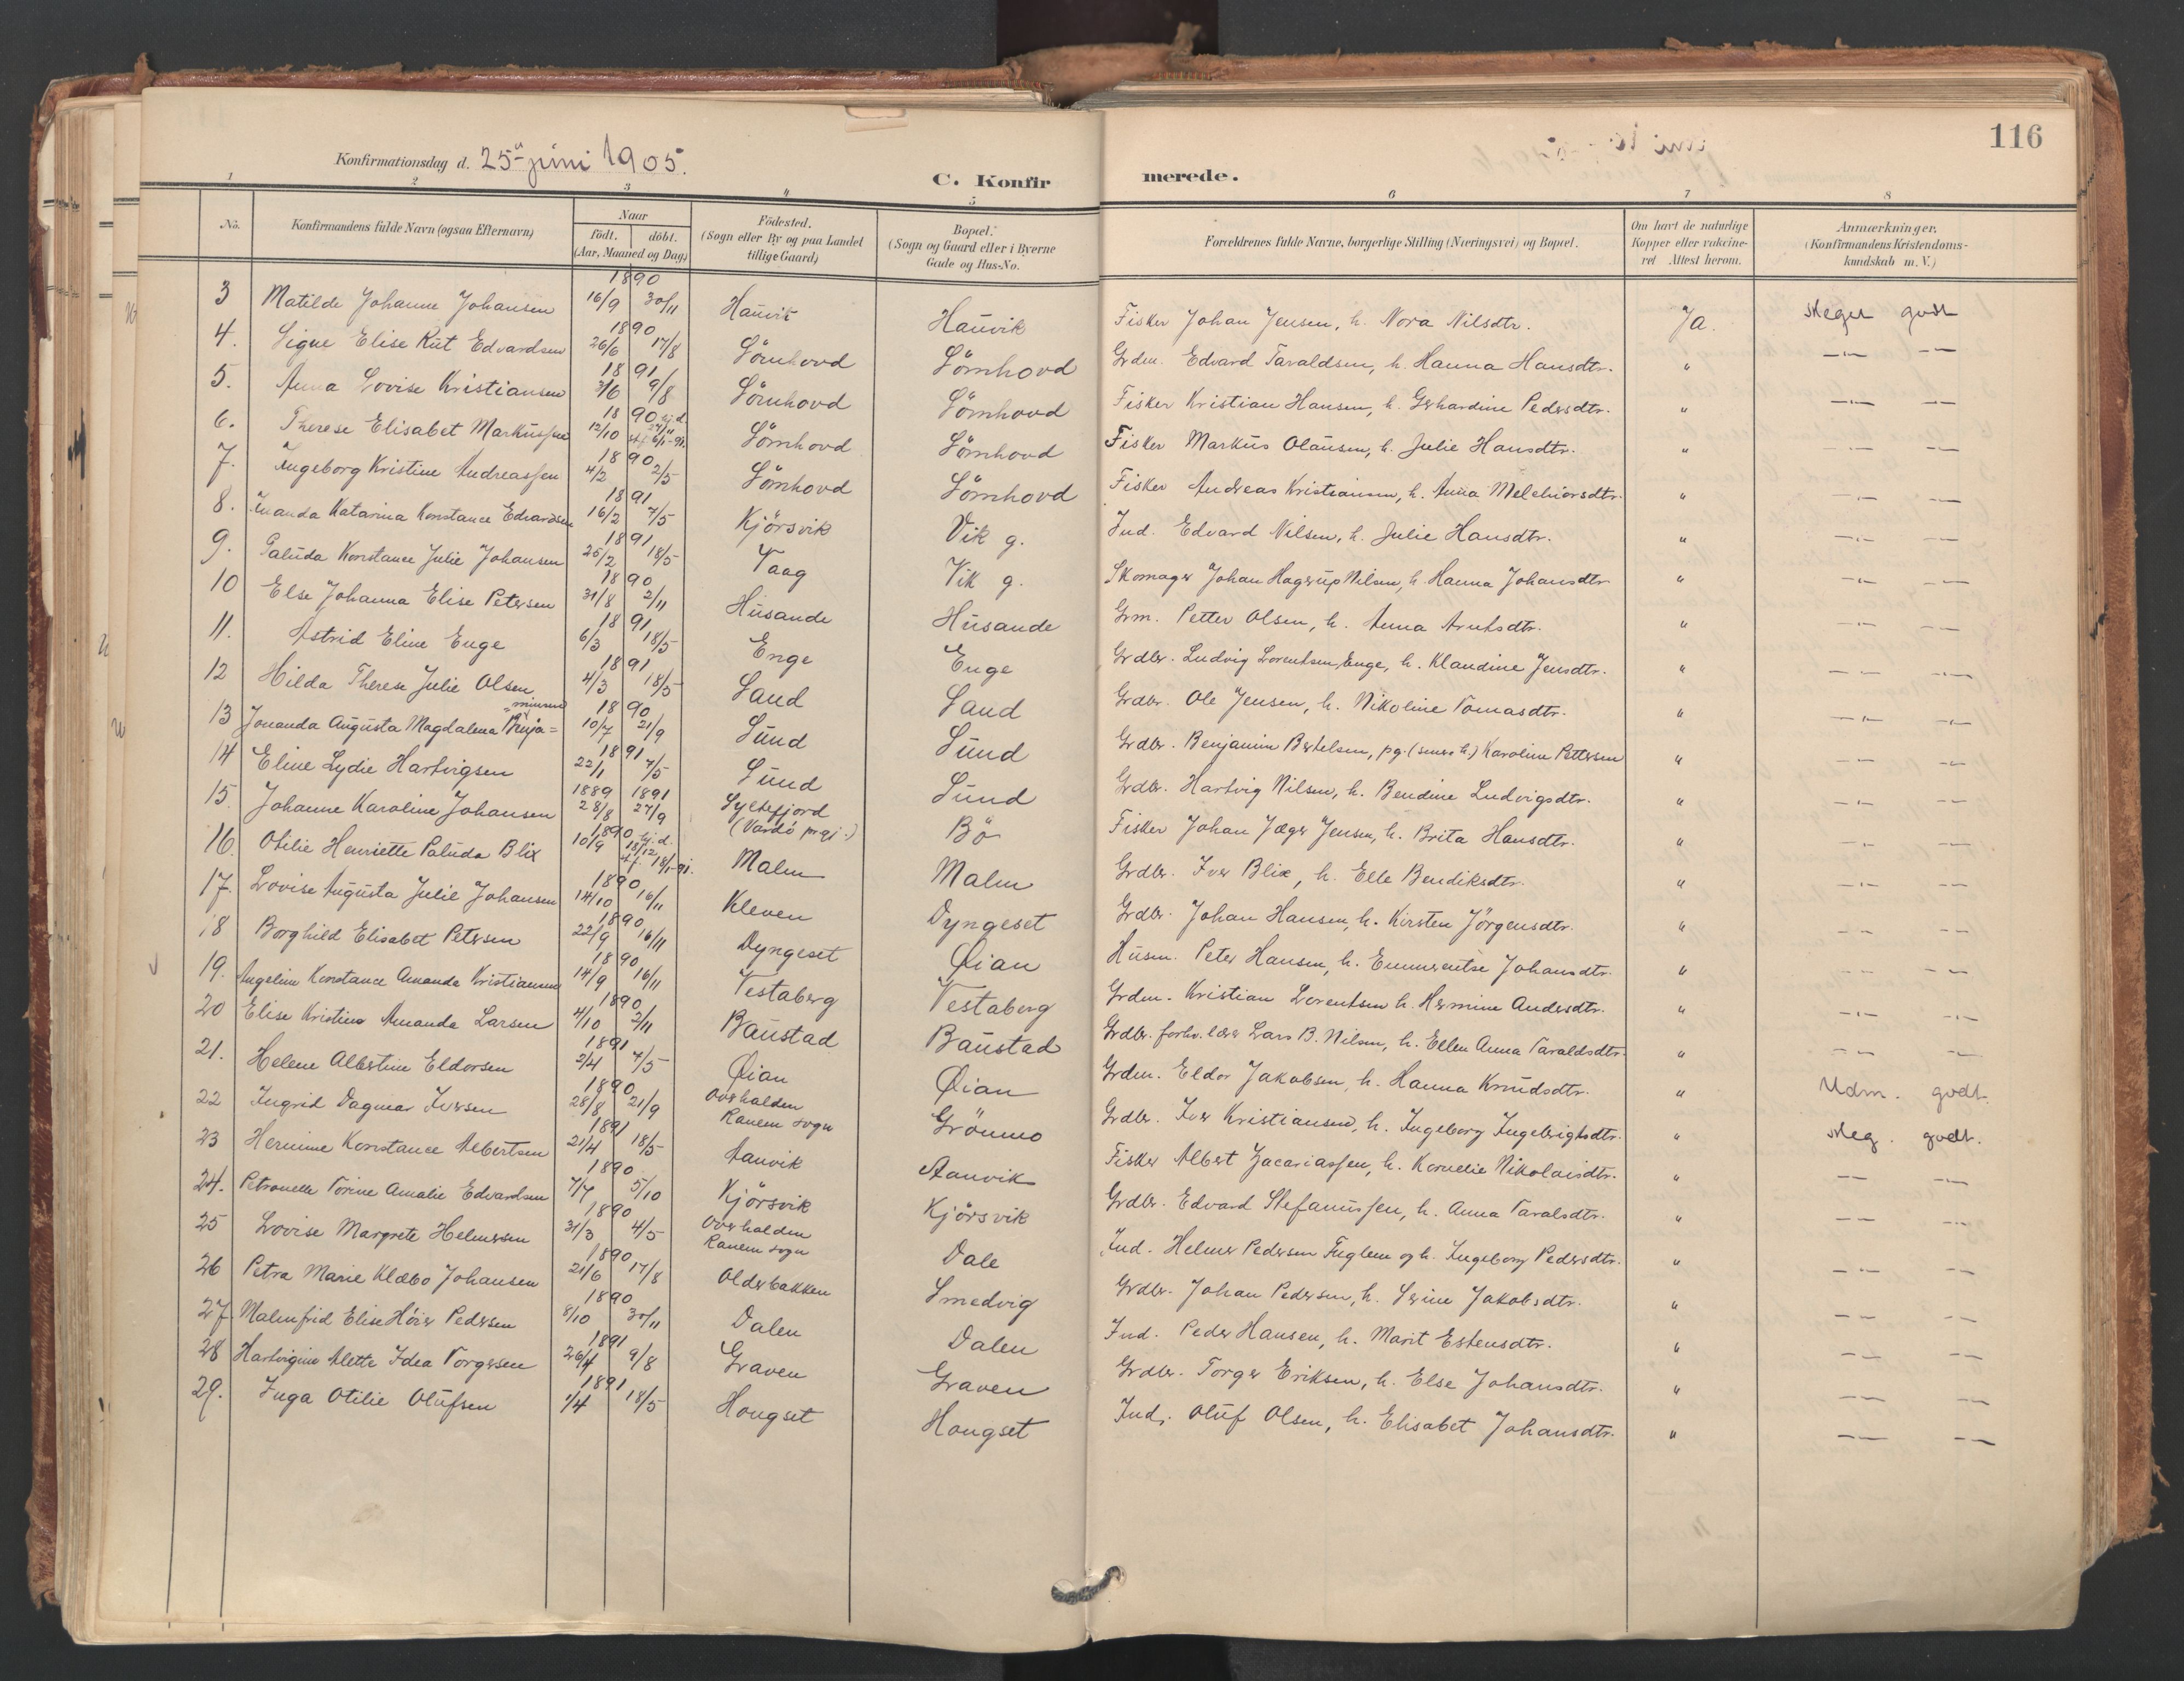 Konfirmationsdag d. 25 juni 1905.
C. Konfirmerede.
116
1 2 3 4 5 6 7 8
No. Konfirmandens fulde Navn (ogsaa Efternavn) Naar født. døbt. (Aar, Maaned og Dag) Fødested. (Sogn eller By og paa Landet tillige Gaard) Bopæl. (Sogn og Gaard eller i Byerne Gade og Hus-No. Forældrenes fulde Navne, borgerlige Stilling (Næringsvei) og Bopæl. Om havt de naturlige Kopper eller vaccineret. Attest herom. Anmærkninger. (Konfirmandens Kristendomskundskab m. V.)
3 Matilde Johanne Johansen 1890 16/9 30/11 Hauvik Hauvik Fisker Johan Jensen, h. Nora Nilsdtr. Ja. Meget godt
4. Signe Elise Rut Edvardsen 1890 26/6 17/8 Sörnhovd Sörnhovd Grdm. Edvard Taraldsen, h. Hanna Hansdtr. " — —
5. Anna Lovise Kristiansen 1891 3/6 9/8 Sörnhovd Sörnhovd Fisker Kristian Hansen, h. Gerhardine Pedersdtr. " — —
6. Therese Elisabet Markussen 1890 12/10 hj.d. 27/11 stf. 6/1-91. Sörnhovd Sörnhovd Fisker Markus Olausen, h. Julie Hansdtr. " — —
7. Ingeborg Kristine Andreassen 1890 4/2 2/5 Sörnhovd Sörnhovd Fisker Andreas Kristiansen, h. Anna Melchiorsdtr. " — —
8. Amanda Katarina Konstance Edvardsen 1891 16/2 7/5 Kjörsvik Vik g. Ind. Edvard Nilsen, h. Julie Hansdtr. " — —
9. Paluda Konstance Julie Johansen 1891 25/2 18/5 Vaag Vik g. Skomager Johan Hagerup Nilsen, h. Hanna Johansdtr. " — —
10 Else Johanna Elise Petersen 1890 31/8 2/11 Husande Husande Grm. Petter Olsen, h. Anna Arntsdtr. " — —
11. Astrid Eline Enge 1891 6/3 18/5 Enge Enge Grdbr. Ludvig Lorentsen Enge, h. Klaudine Jensdtr. " — —
12 Hilda Therese Julie Olsen 1891 4/3 18/5 Sand Sand Grdbr. Ole Jensen, h. Nikoline Tomasdtr. " — —
13 Jonanda Augusta Magdalena Benja=minsen 1890 10/7 21/9 Sund Sund Grdbr. Benjamin Bertelsen, pg. (senere h.) Karoline Pettersen " — —
14 Eline Lydie Hartvigsen 1891 22/1 7/5 Sund Sund Grdbr. Hartvig Nilsen, h. Bendine Ludvigsdtr. " — —
15. Johanne Karoline Johansen 1889 28/8 1891 27/9 Syltefjord (Vardö prgj.) Bö Fisker Johan Jæger Jensen, h. Brita Hansdtr. " — —
16. Otilie Henriette Paluda Blix 1890 10/9 hj.d. 18/12 stf. 18/1-91. Malm Malm Grdbr. Iver Blix, h. Elle Bendiksdtr. " — —
17. Lovise Augusta Julie Johansen 1890 14/10 16/11 Kleven Dyngeset Grdbr. Johan Hansen, h. Kirsten Jörgensdtr. " — —
18 Borghild Elisabet Petersen 1890 22/9 16/11 Dyngeset Öian Husm. Peter Hansen, h. Emmerentse Johansdtr. " — —
19. Angeline Konstance Amanda Kristiansen 1890 14/9 16/11 Vestaberg Vestaberg Grdm. Kristian Lorentsen h. Hermine Andersdtr. " — —
20 Elise Kristine Amanda Larsen 1890 4/10 2/11 Baustad Baustad Grdbr. forhv. lærer Lars B. Nilsen, h. Ellen Anna Taraldsdtr. " — —
21. Helene Albertine Eldorsen 1891 2/4 7/5 Öian Öian Grdm. Eldor Jakobsen, h. Hanna Knudsdtr. " Udm. godt.
22 Ingrid Dagmar Iversen 1890 28/8 21/9 Overhalden Ranem sogn Grönmo Grdbr. Iver Kristiansen, h. Ingeborg Ingebrigtsdtr. " Meg. godt.
23 Hermine Konstance Albertsen 1891 21/4 18/5 Aanvik Aanvik Fisker Albert Zacariassen, h. Kornelie Nikolaisdtr. " — —
24. Petronelle Torine Amalie Edvardsen 1890 7/7 5/10 Kjörsvik Kjörsvik Grdbr. Edvard Stefanussen, h. Anna Taralsdtr. " — —
25 Lovise Margrete Helmersen 1890 31/3 4/5 Overhalden Ranem sogn Dale Ind. Helmer Pedersen Fuglem og h. Ingeborg Pedersdtr. " — —
26 Petra Marie Klæbo Johansen 1890 21/6 17/8 Olderbakken Smedvig Grdbr. Johan Pedersen, h. Serine Jakobsdtr. " — —
27. Malmfrid Elise Höier Pedersen 1890 8/10 30/11 Dalen Dalen Ind. Peder Hansen, h. Marit Estensdtr. " — —
28 Hartvigine Alette Idea Torgersen 1891 26/4 9/8 Graven Graven Grdbr. Torger Eriksen, h. Else Johansdtr. " — —
29. Inga Otilie Olufsen 1891 1/4 18/5 Hougset Hougset Ind. Oluf Olsen, h. Elisabet Johansdtr. " — —